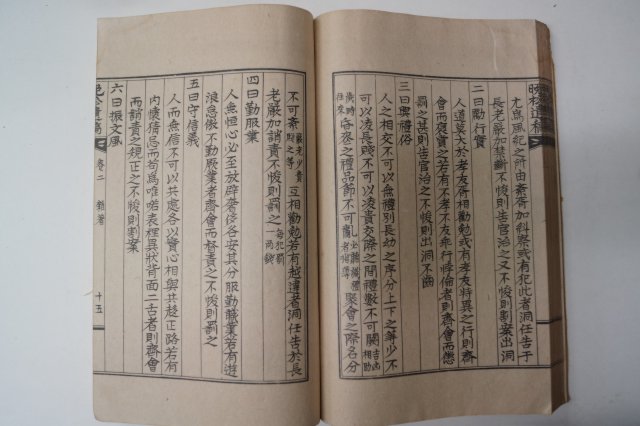 尤爲風紀之所由紊齊加糾察或有犯此者洞任告于
長老嚴加禁斷不悛則告官治之又不悛則割案出洞
二曰勵行實
人道莫大於孝友齊相勸勉或有孝友特異之行則齊
會而褒之若有不孝不友乖行悖倫者則齊會而懲
罰之甚則告官治之不悛則出洞不齒
三曰興禮俗
人之相交不可以無禮別長幼之序分上下之等少不
可以凌長賤不可以凌貴交際之間禮數不可闕 吉凶相助
歲時往來 各姿之禮品節不可亂 聚會之際名分
不可紊 互相勸勉若有越違者洞任告於長
老嚴加誚責不悛則罰之 每犯罰一兩錢
四曰勤服業
人無恒心必至放辟奢侈各安其分服勤職業若有遊
浪怠傲不勤厥業者齊會而督責之不悛則罰之
五曰守信義
人而無信不可以共處各以實心相與共趍正路若有
內懷猜忌而苟爲唯喏表裡異狀背面二舌者則齊會
而誚責之規正之不悛則割案
六曰振文風
晩松遺稿
卷二
雜著
十五